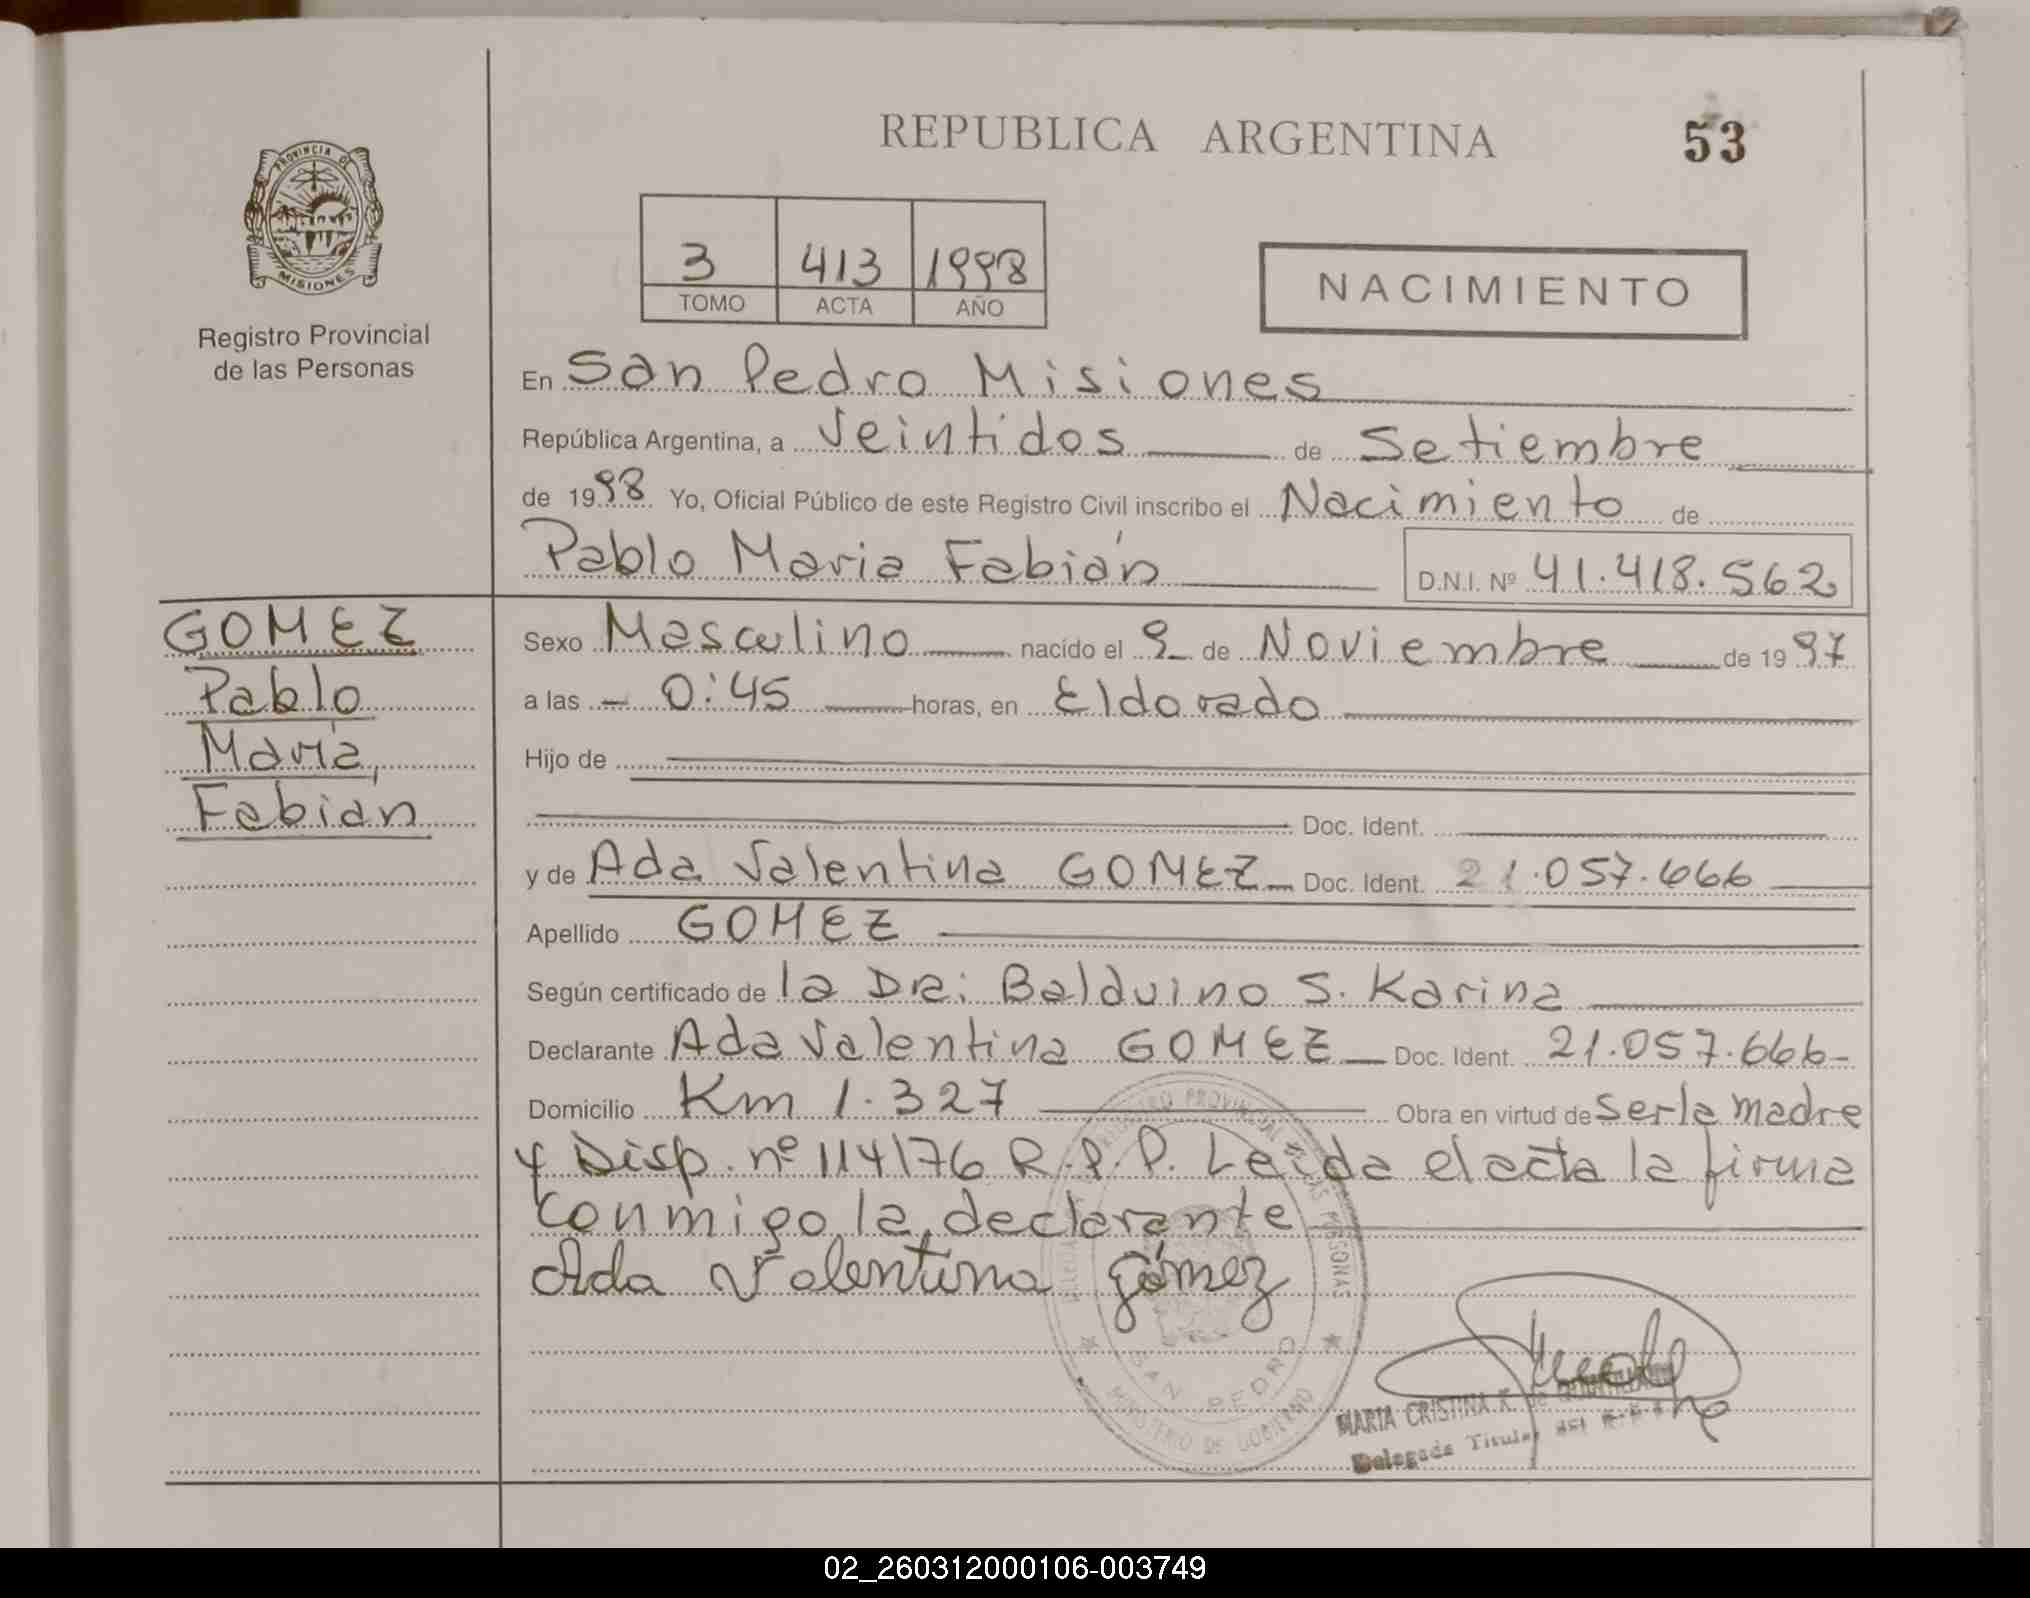 REPUBLICA ARGENTINA
53
PROVINCIA DE
MISIONES
Registro Provincial
de las Personas
3 413 1998
TOMO ACTA AÑO
NACIMIENTO
En San Pedro Misiones
República Argentina, a Veintidos de Setiembre
de 1998 Yo, Oficial Público de este Registro Civil inscribo el Nacimiento de
Pablo Maria Fabián D.N.I. Nº 41.418.562
GOMEZ
Pablo
María
Fabián
Sexo Masculino nacido el 9 de Noviembre de 1997
a las - 0:45 horas, en Eldorado
Hijo de
Doc. Ident.
y de Ada Valentina GOMEZ Doc. Ident. 21.057.666
Apellido GOMEZ
Según certificado de la Dra: Balduino S. Karina
Declarante Ada Valentina GOMEZ Doc. Ident. 21.057.666-
Domicilio Km 1.327 Obra en virtud de ser la madre
y Disp. nº 114/76 R.P.P. Leida el acta la firma
conmigo la declarante
Ada Valentina Gómez
REGISTRO PROVINCIAL DE LAS PERSONAS
SAN PEDRO
MINISTERIO DE GOBIERNO
MARIA CRISTINA K. de
Delegada Titular del
02_260312000106-003749